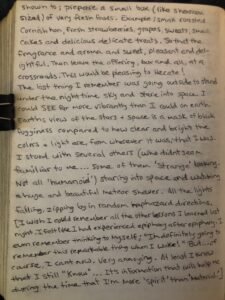 shown to; prepare a small box (like shoebox
sized) of very fresh foods. Example: small roasted
Cornish hen, fresh strawberries, grapes, sweets, small
cakes and delicious delicate treats. So that the
fragrance and aroma and sweet, pleasant and del-
ightful. Then leave the offering, box and all, at a
crossroads. This would be pleasing to Hecate.
The last thing I remember was going outside to stand
under the night time sky and stare into space. I
could SEE far more vibrantly than I could on earth.
Earth's view of the stars + space is a mask of black
hugginess compared to how clear and bright the
colors + light are, from wherever it was, that I was.
I stood with several others (who didn't seem
familiar to me... Some of them 'strange' looking.
Not all "humanoid") staring into space and watching
a huge and beautiful meteor shower. All the lights
falling, zipping by in random haphazard directions.
[I wish I could remember all the other lessons I learned last
night. I felt like I had experienced epiphany after epiphany. I
even remember thinking to myself; "I'll definitely going to
remember this remarkable thing when I wake! "But... of
course, I can't now. Very annoying. At least I know
that I still "Know"... It's information that will help me
during the time that I'm more "Spirit" than "Material".]